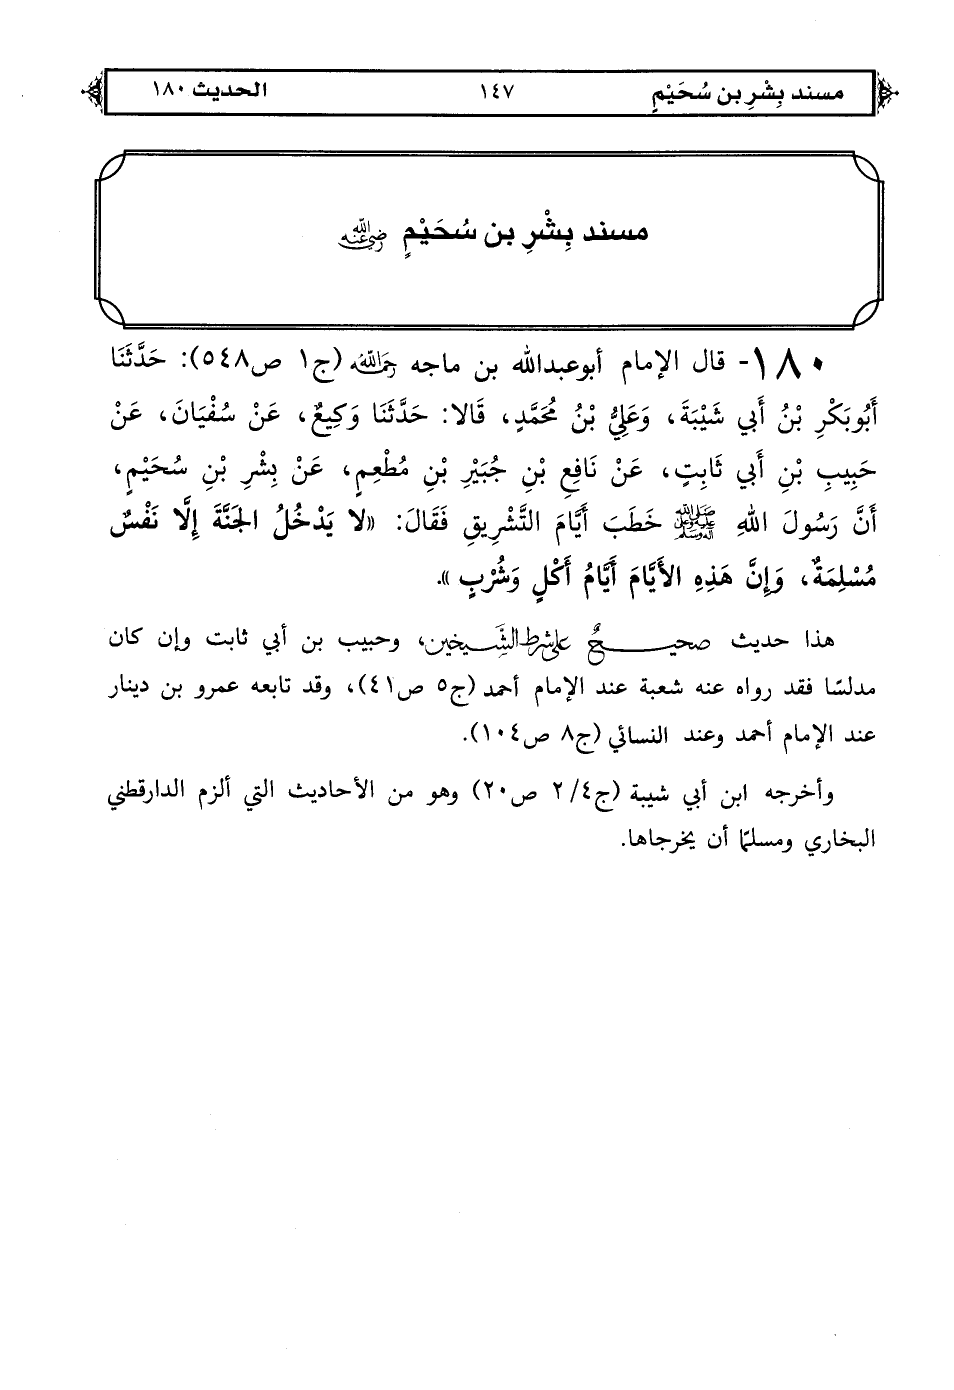 مسند بِشْرِ بن سُحَيْمٍ ١٤٧ الحديث ١٨٠
مسند بِشْرِ بن سُحَيْمٍ رضي الله عنه
١٨٠- قال الإمام أبوعبدالله بن ماجه رحمه الله (ج١ ص٥٤٨): حَدَّثَنَا
أَبُوبَكْرِ بْنُ أَبي شَيْبَةَ، وَعَلِيُّ بْنُ مُحَمَّدٍ، قَالا: حَدَّثَنَا وَكِيعٌ، عَنْ سُفْيَانَ، عَنْ
حَبِيبِ بْنِ أَبي ثَابِتٍ، عَنْ نَافِعِ بْنِ جُبَيْرِ بْنِ مُطْعِمٍ، عَنْ بِشْرِ بْنِ سُحَيْمٍ،
أَنَّ رَسُولَ اللهِ ﷺ خَطَبَ أَيَّامَ التَّشْرِيقِ فَقَالَ: «لا يَدْخُلُ الجَنَّةَ إِلَّا نَفْسٌ
مُسْلِمَةٌ، وَإِنَّ هَذِهِ الأَيَّامَ أَيَّامُ أَكْلٍ وَشُرْبٍ».
هذا حديث صحيحٌ على شرط الشَّيخين، وحبيب بن أبي ثابت وإن كان
مدلسًا فقد رواه عنه شعبة عند الإمام أحمد (ج٥ ص٤١)، وقد تابعه عمرو بن دينار
عند الإمام أحمد وعند النسائي (ج٨ ص١٠٤).
وأخرجه ابن أبي شيبة (ج٤/ ٢ ص٢٠) وهو من الأحاديث التي ألزم الدارقطني
البخاري ومسلمًا أن يخرجاها.